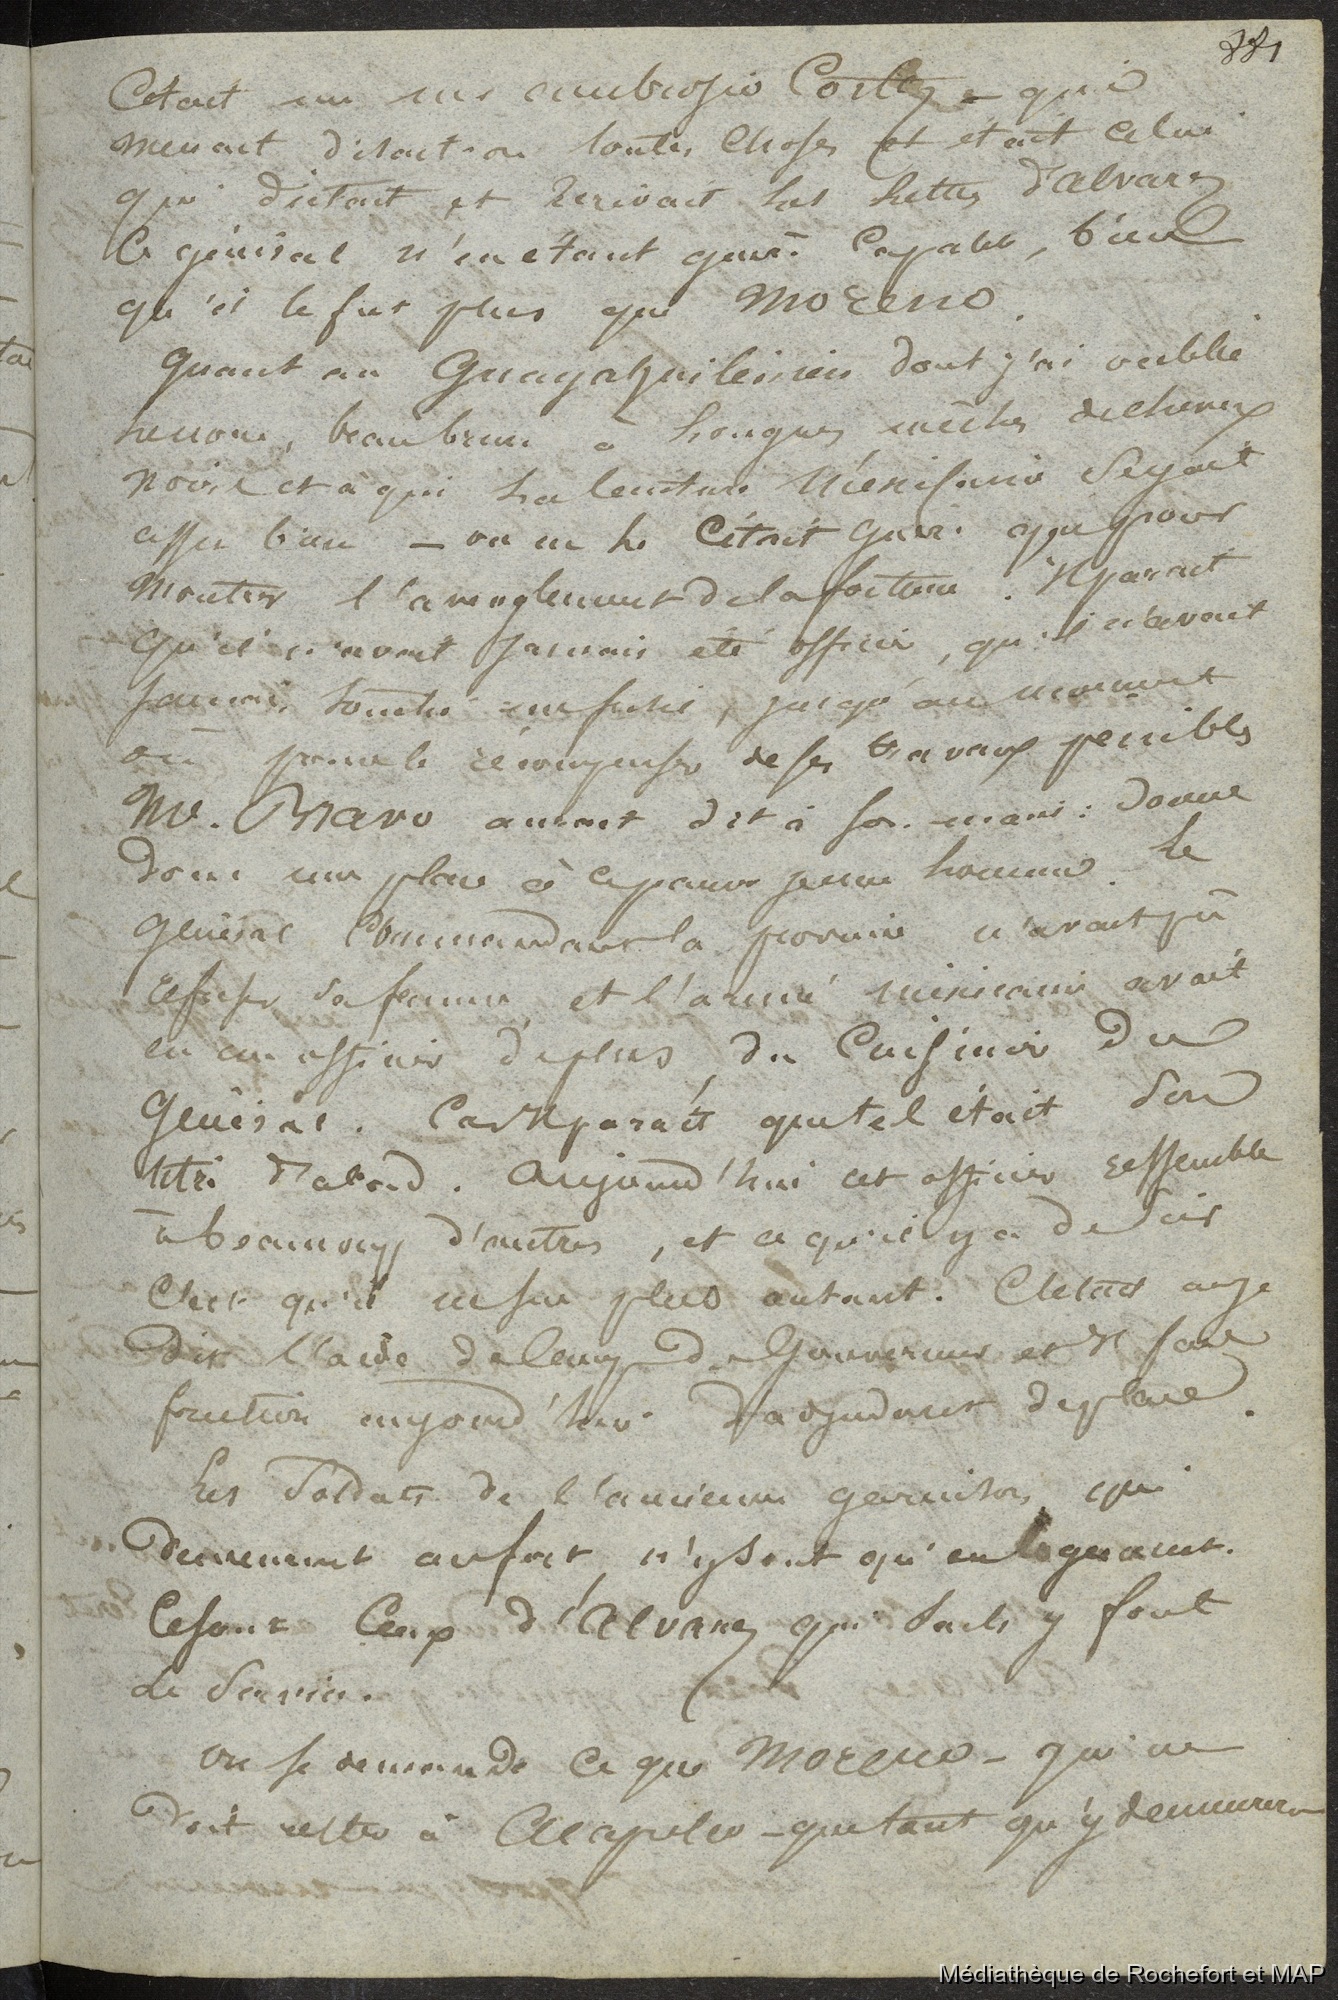 331
C'était un Mr ambrosio Cortez – qui
menait disait-on toutes choses et était celui
qui dictait et écrivait les lettres d'Alvarez
le général n'en étant guère capable, bien
qu'il le fut plus que Moreno.
Quant au Guayaquileinien dont j'ai oublié
le nom, beau brun à longues mèches de cheveux
noirs et à qui la ceinture Méxicaine seyait
assez bien – on ne le citait guère que pour
montrer l'aveuglement de la fortune. Il parait
qu'il n'avait jamais été officier, qu'il n'avait
jamais touché un fusil, jusqu'au moment
où pour le récompenser de ses travaux penibles
Me. Bravo aurait dit à son mari: donne
donc une place à ce pauvre jeune homme. Le
Général Commandant la province n'avait pû
refuser sa femme, et l'armée méxicaine avait
eu un officier de plus, du Cuisinier du
Général. Car Il parait que tel était son
titre d'abord. Aujourd'hui cet officier ressemble
à beaucoup d'autres, et ce qu'il y a de sûr
C'est qu'il n'est plus autant. C'était ai-je
dit l'aide de camp du Gouverneur et Il fait
fonction aujourd'hui d'adjudant de place.
Les Soldats de l'ancienne garnison, qui
demeurent au fort, n'y sont qu'en logement.
Ce sont Ceux d'Alvarez qui seuls y font
Le Service.
On se demande ce que Moreno – qui ne
doit rester à Acapulco – que tant qu'y demeurera
Médiathèque de Rochefort et MAP